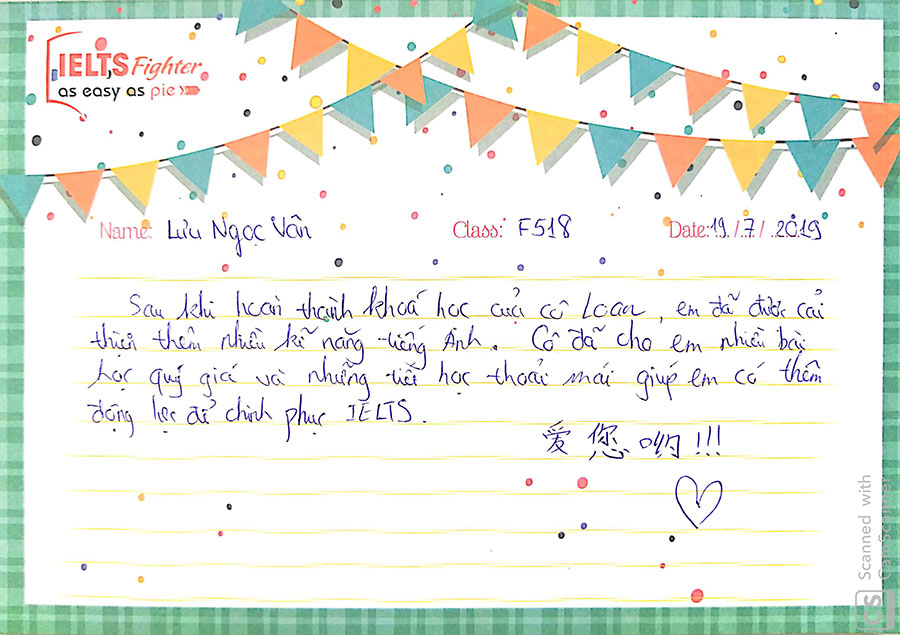 IELTS Fighter
as easy as pie
Name: Lưu Ngọc Vân Class: F518 Date: 19/7/2019
Sau khi hoàn thành khoá học của cô Loan, em đã được cải
thiện thêm nhiều kĩ năng tiếng Anh. Cô đã cho em nhiều bài
học quý giá và những tiết học thoải mái giúp em có thêm
động lực để chinh phục IELTS.
爱您哟!!!
Scanned with
CamScanner
CS